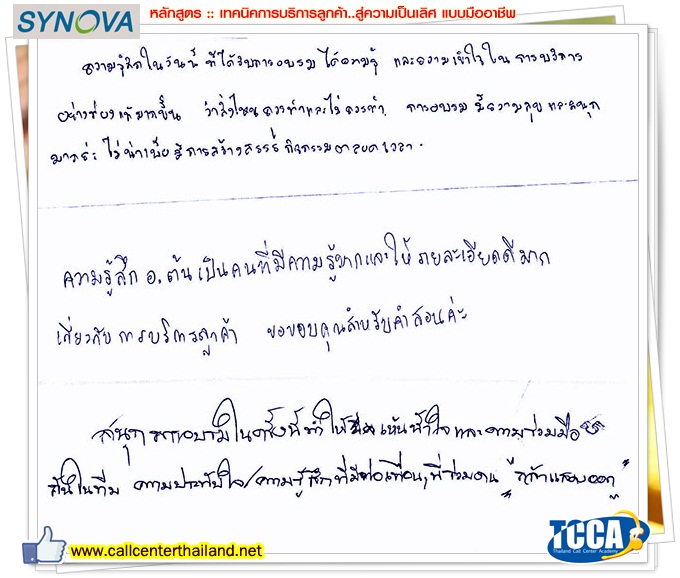 SYNOVA
หลักสูตร :: เทคนิคการบริการลูกค้า..สู่ความเป็นเลิศ แบบมืออาชีพ
ความรู้สึกในวันนี้ ที่ได้รับการอบรม ได้ความรู้ และความเข้าใจใน การบริการ
อย่างถ่องแท้มากขึ้น ว่าสิ่งไหนควรทำและไม่ควรทำ การอบรม มีความสุข และสนุก
มากค่ะ ไม่น่าเบื่อ มีการสร้างสรรค์ กิจกรรมตลอดเวลา
ความรู้สึก อ.ต้น เป็นคนที่มีความรู้มากและให้รายละเอียดดีมาก
เกี่ยวกับการบริการลูกค้า ขอขอบคุณสำหรับคำสอนค่ะ
สนุก การอบรมในครั้งนี้ทำให้ เห็นน้ำใจและความร่วมมือ
กันในทีม ความประทับใจ/ความรู้สึกที่มีต่อเพื่อน,พี่ร่วมงาน "กล้าแสดงออก"
www.callcenterthailand.net
TCCA
Thailand Call Center Academy